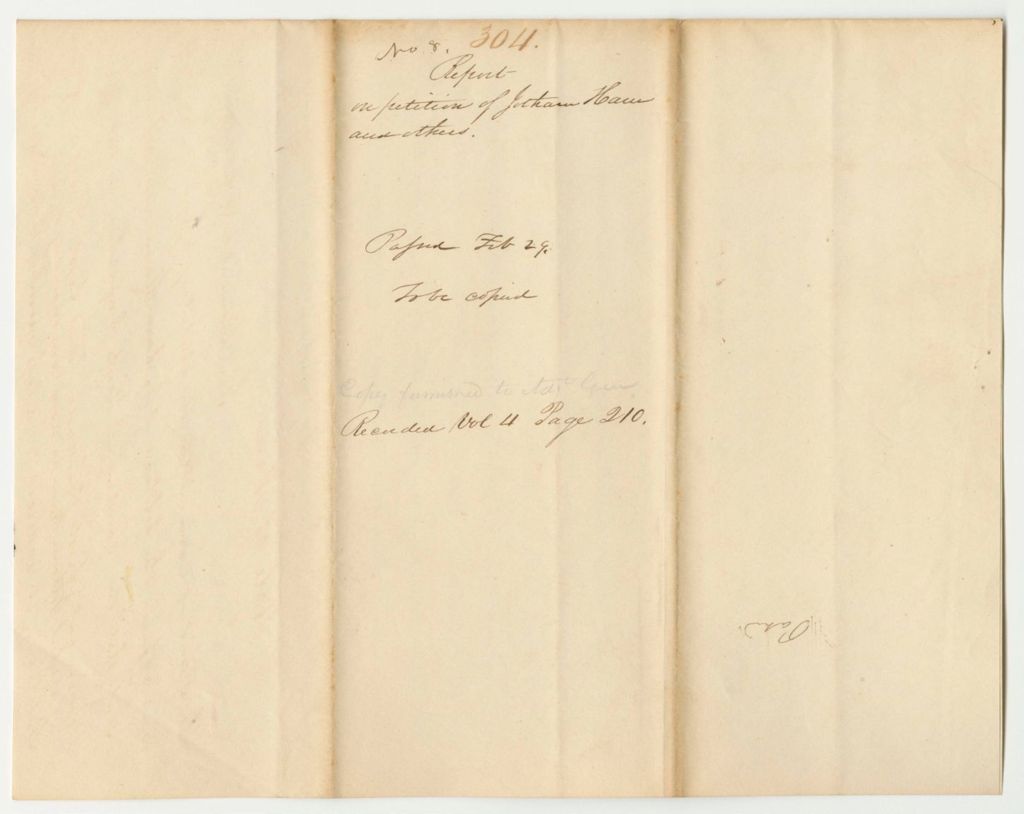 No 8. 304.
Report
on petition of Jotham Ham
and others.
Passed Feb 29.
To be copied
Copy furnished to Adjt Genr.
Recorded Vol 4 Page 210.